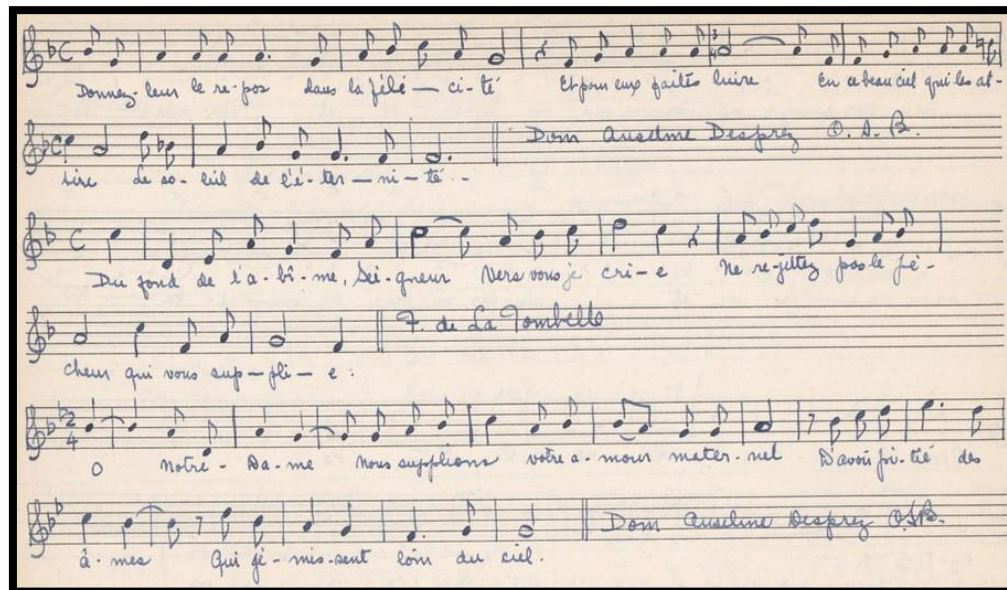 Donnez-leur le re-pos dans la féli — ci-té Et pour eux faites luire En ce beau ciel qui les at-
tire Le so-leil de l'é-ter — ni-té. -
Dom Anselme Desprez O. S. B.
Du fond de l'a-bî-me, Sei-gneur Vers vous je cri-e Ne re-jettez pas le pé-
cheur qui vous sup-pli — e :
F. de La Tombelle
2
4
O Notre-Da-me Nous supplions votre a-mour mater-nel D'avoir pi-tié des
â-mes Qui gé-mis-sent loin du ciel.
Dom Anselme Desprez O.S.B.